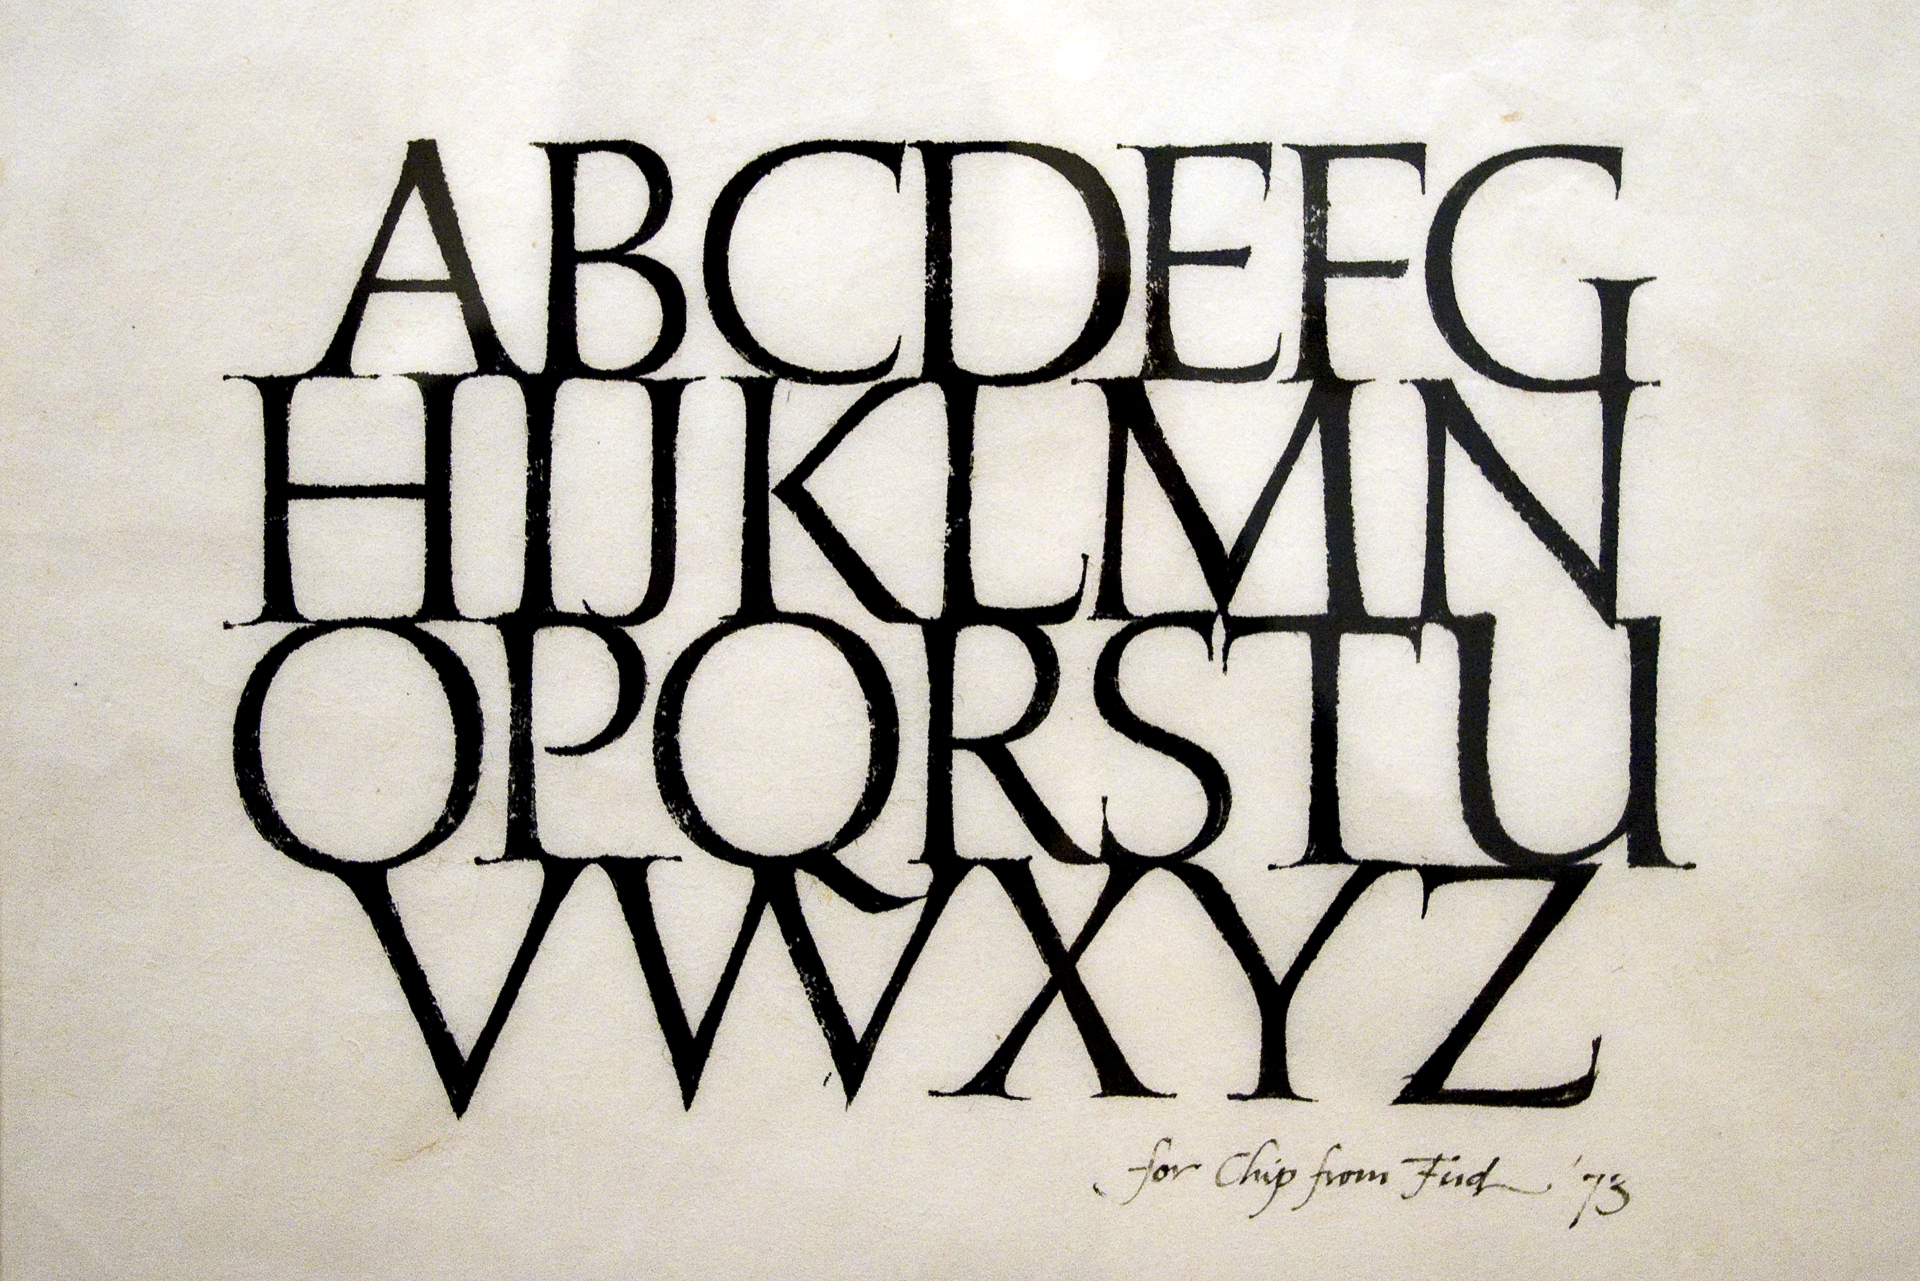 ABCDEFG
HIJKLMN
OPQRSTU
VWXYZ
for Chip from Fud '73